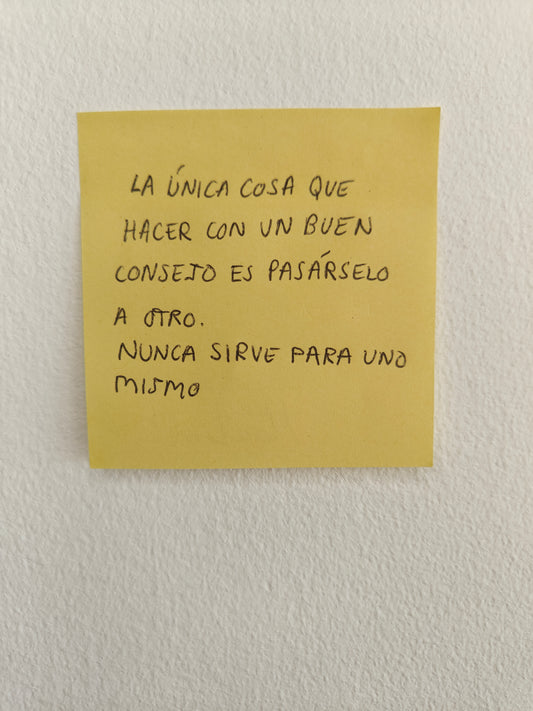 LA ÚNICA COSA QUE
HACER CON UN BUEN
CONSEJO ES PASÁRSELO
A OTRO.
NUNCA SIRVE PARA UNO
MISMO